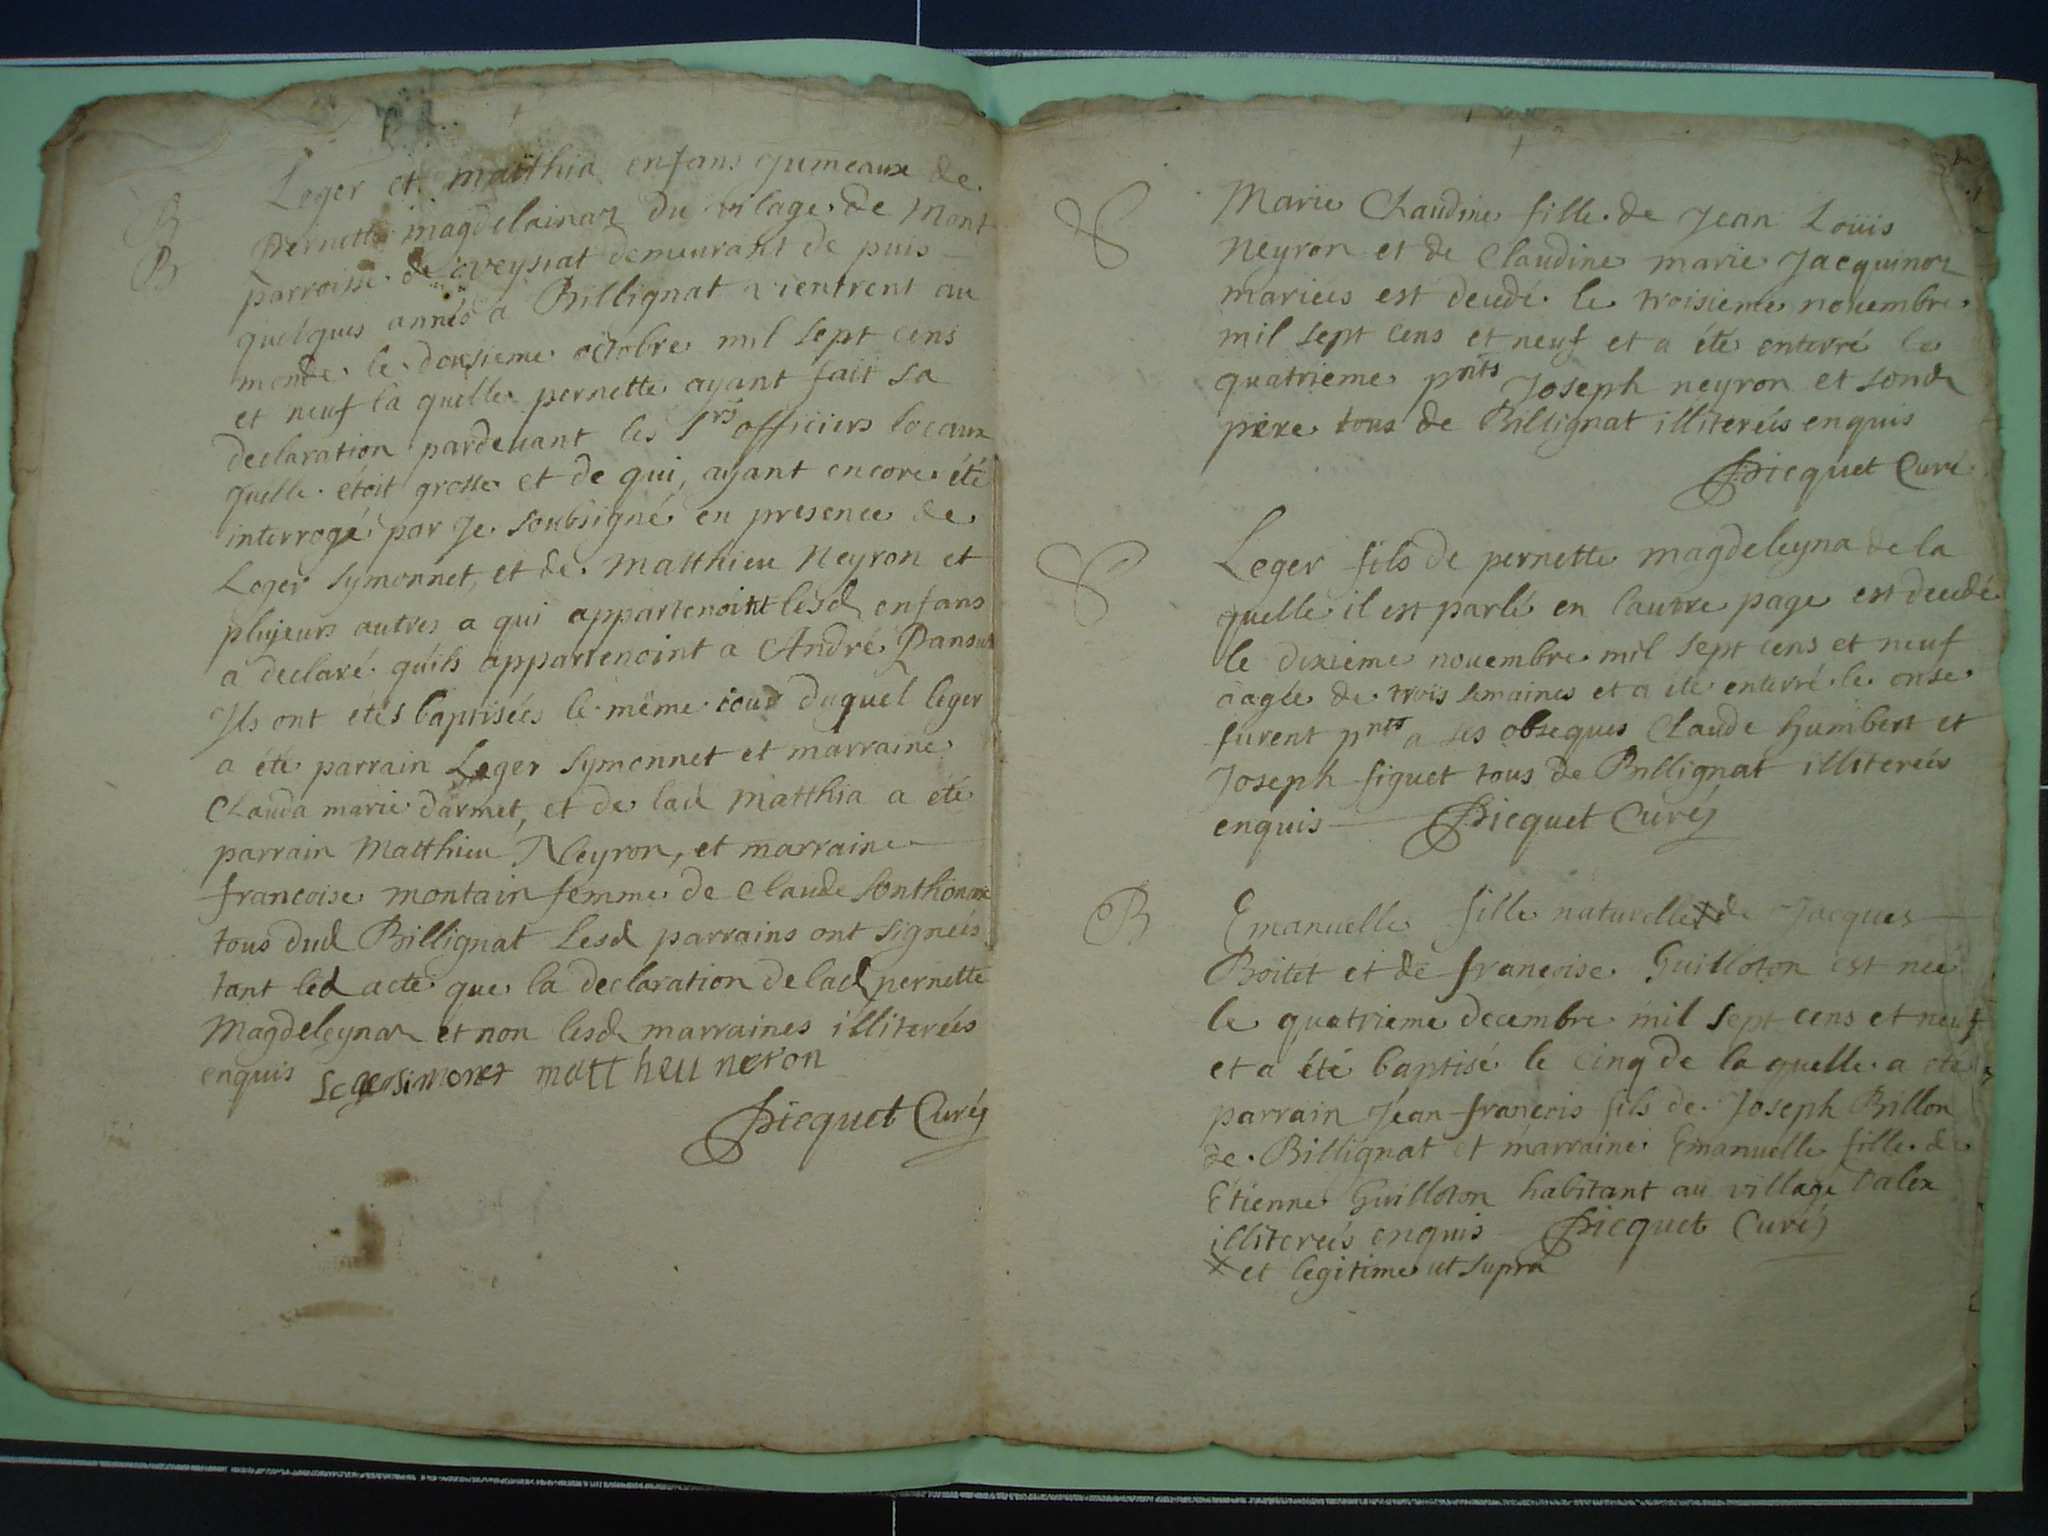 B
B
Leger et matthia enfans jumeaux de
Pernette magdelainaz du vilage de Mont
parroisse de veysiat demeurant de puis
quelques annés a Billignat vientrent au
monde le dousieme octobre mil sept cens
et neuf la quelle pernette ayant fait sa
declaration pardevant les Srs officiers locaux
quelle étoit grosse et de qui, ayant encore été
interrogé par Je soubsigné en presence de
Leger Symonnet, et de Matthieu Neyron et
plusieurs autres a qui appartenoint lesd enfans
a declaré quils appartenoint a André
Ils ont étés baptisées le même duquel leger
a été parrain Leger Symonnet et marraine
Clauda marie darmet, et de lad Matthia a été
parrain Matthieu Neyron, et marraine
francoise montain femme de Claude Sonthonnax
tous dud Billignat Lesd parrains ont signeés
tant led acte que la declaration de lad pernette
Magdeleynaz et non lesd marraines illitereés
enquis Leger simonet mattheu neron
Picquet Curé
&
Marie Claudine fille de Jean Loüis
Neyron et de Claudine marie Jacquinoz
mariees est decedé le troisieme novembre
mil sept cens et neuf et a été enterré le
quatrieme pnts Joseph neyron et sond
pere tous de Billignat illitereés enquis
Picquet Curé
&
Leger fils de pernette magdeleyna de la
quelle il est parlé en lautre page est decedé
le dixieme novembre mil sept cens et neuf
aagée de trois semaines et a été enterré le onse
furent pnts a ses obseques Claude humbert et
Joseph figuet tous de Billignat illitereés
enquis Picquet Curé
B
Emanuelle fille naturelle x de Jacques
Boitet et de francoise Guilloton est neé
le quatrieme decembre mil sept cens et neuf
et a été baptisé le cinq de la quelle a été
parrain Jean francois fils de Joseph Billon
de Billignat et marraine Emanuelle fille de
Etienne Guilloton habitant au village Dalex
illitereés enquis Picquet Curé
x et legitime ut supra